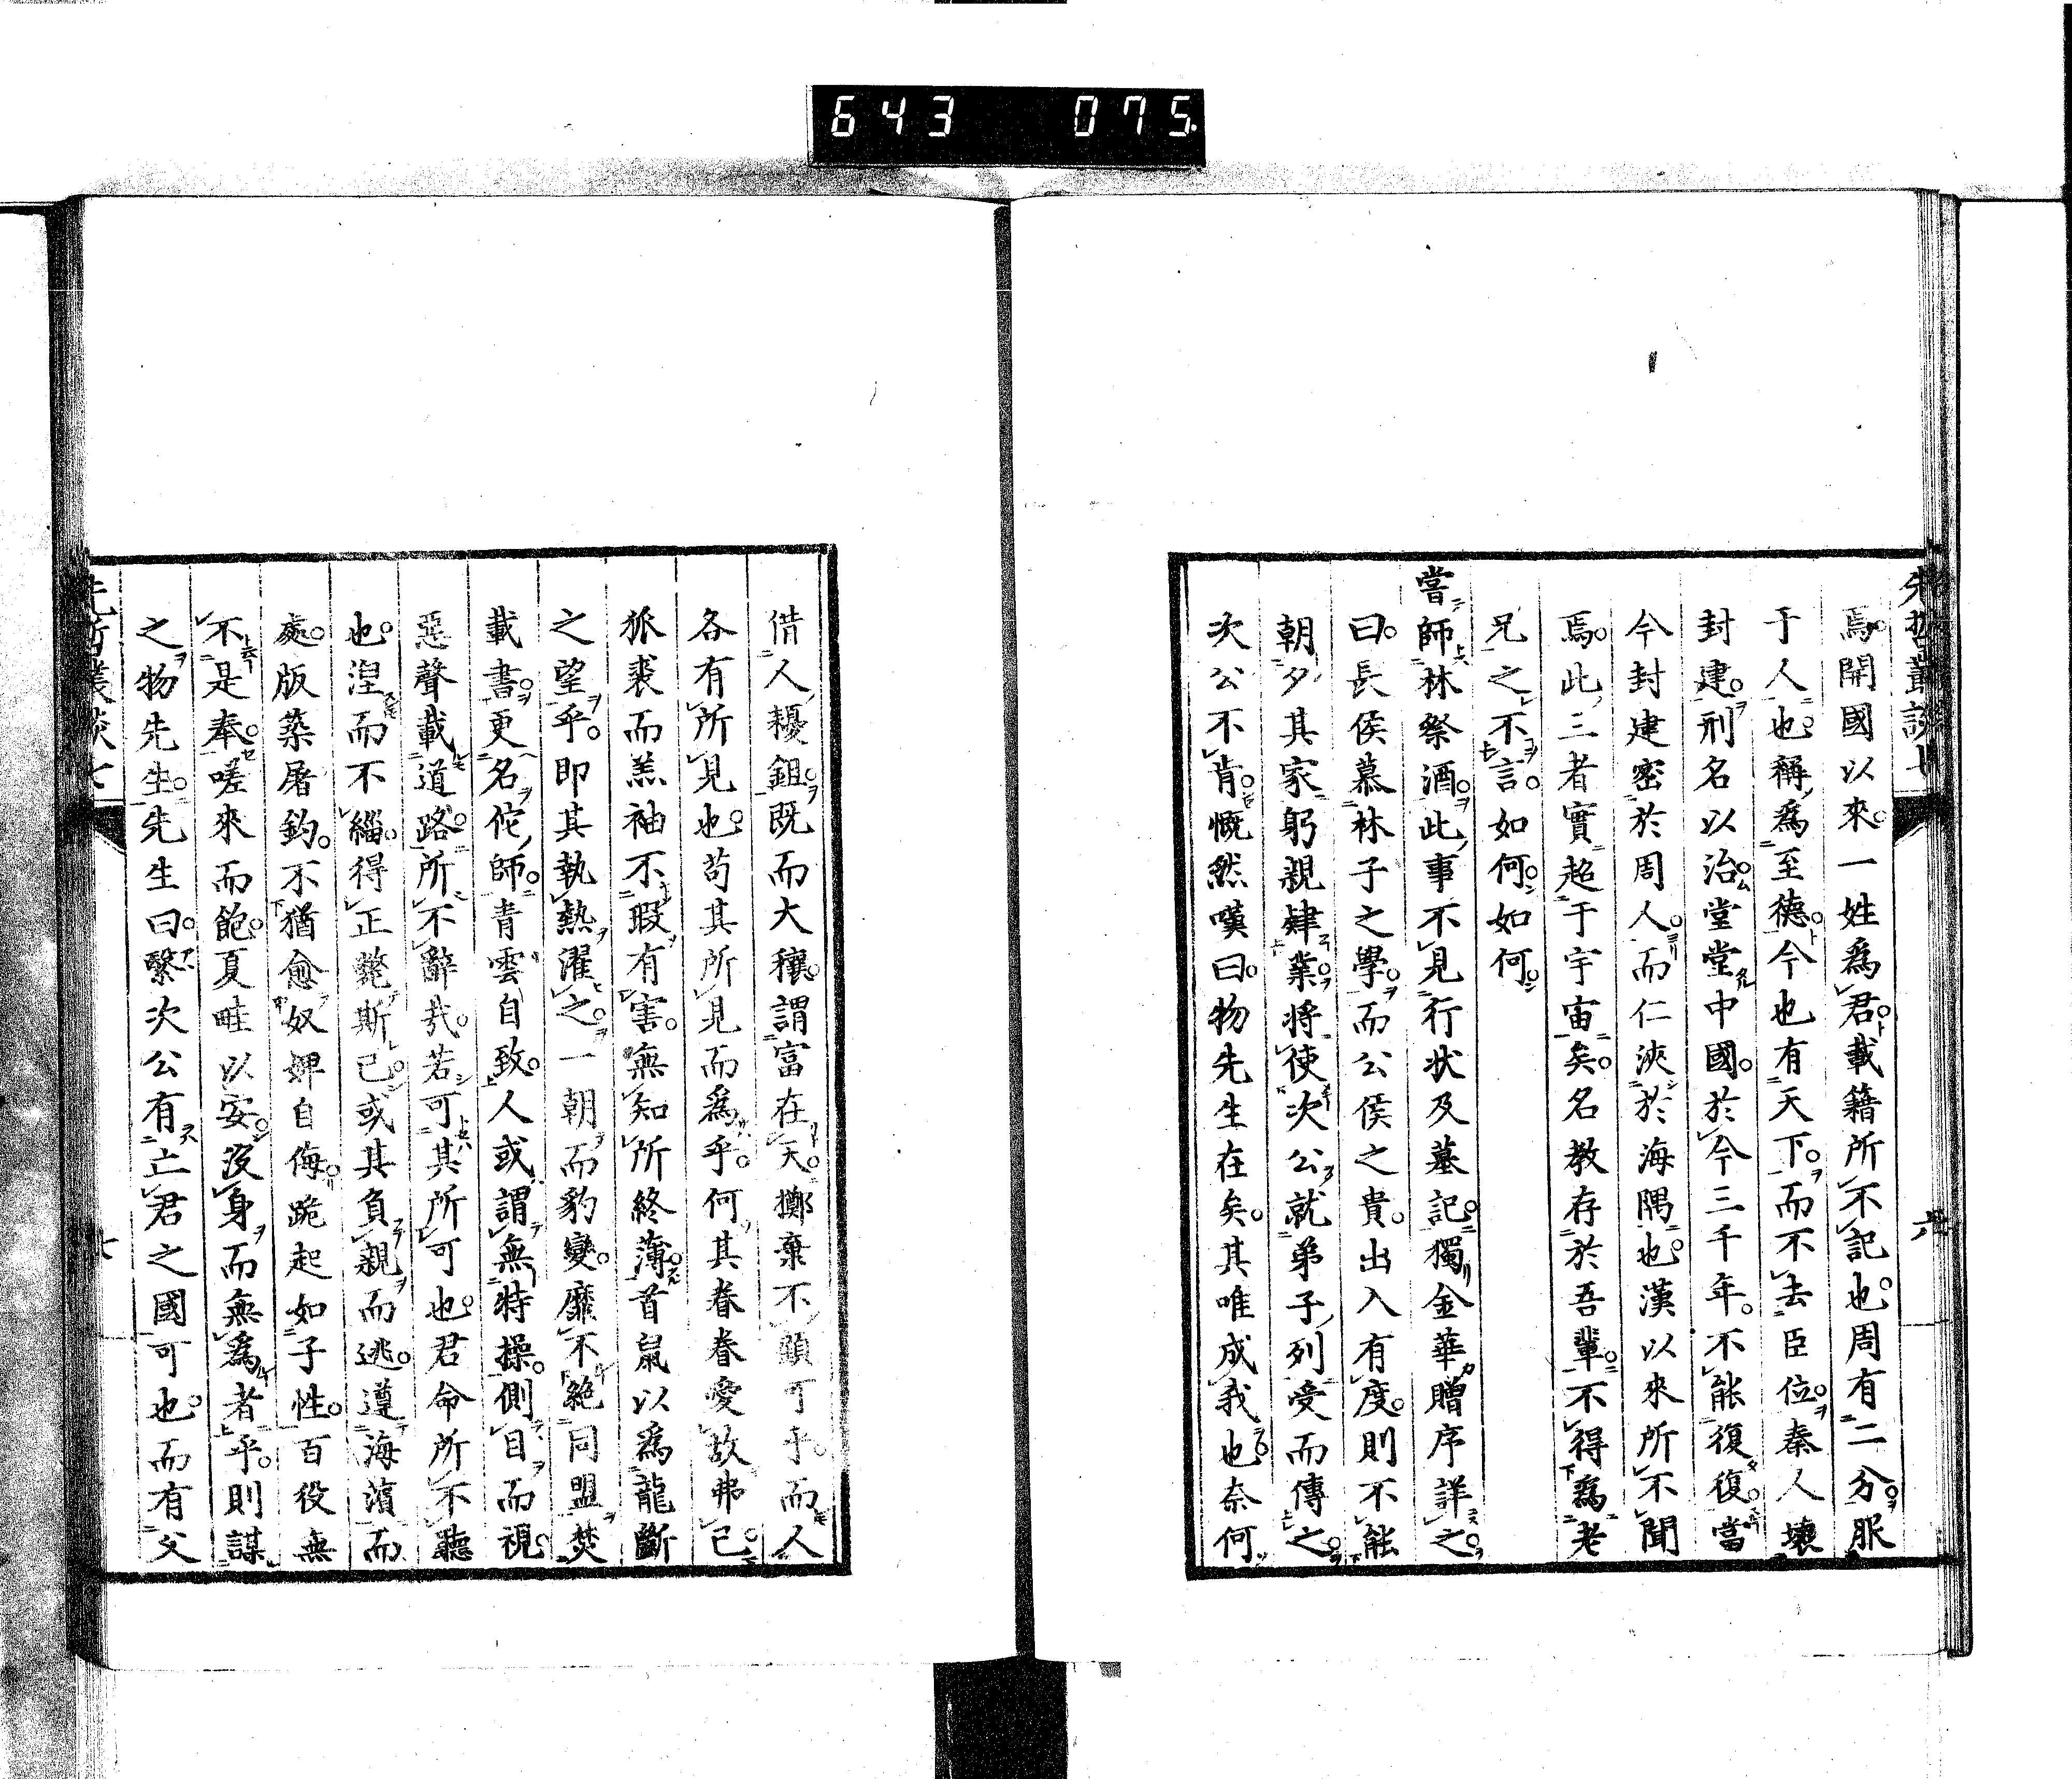 643 075
先哲叢談七
六
焉開國以來一姓爲君載籍所不記也周有二分服
于人也稱爲至德今也有天下而不去臣位秦人壞
封建刑名以治堂堂中國於今三千年不能復復當
今封建密於周人而仁浹於海隅也漢以來所不聞
焉此三者實超于宇宙矣名教存於吾輩不得爲老
兄之不言如何如何
嘗師林祭酒此事不見行狀及墓記獨金華贈序詳之
曰長侯慕林子之學而公侯之貴出入有度則不能
朝夕其家躬親肄業將使次公就弟子列受而傳之
次公不肯慨然嘆曰物先生在矣其唯成我也奈何
借人耰鉏既而大穰謂富在天擲棄不顧可乎而人
各有所見也苟其所見而爲乎何其眷眷愛故弗已
狐裘而羔袖不瑕有害無知所終薄首鼠以爲龍斷
之望乎即其執熱濯之一朝而豹變靡不絕同盟焚
載書更名佗師青雲自致人或謂無特操側目而視
惡聲載道路所不辭哉若可其所可也君命所不聽
也涅而不緇得正斃斯已或其負親而逃遵海濱而
處版築屠釣不猶愈奴婢自侮跪起如子性百役無
不是奉嗟來而飽夏畦以安沒身而無爲者乎則謀
之物先生先生曰繄次公有亡君之國可也而有父
先哲叢談七
七